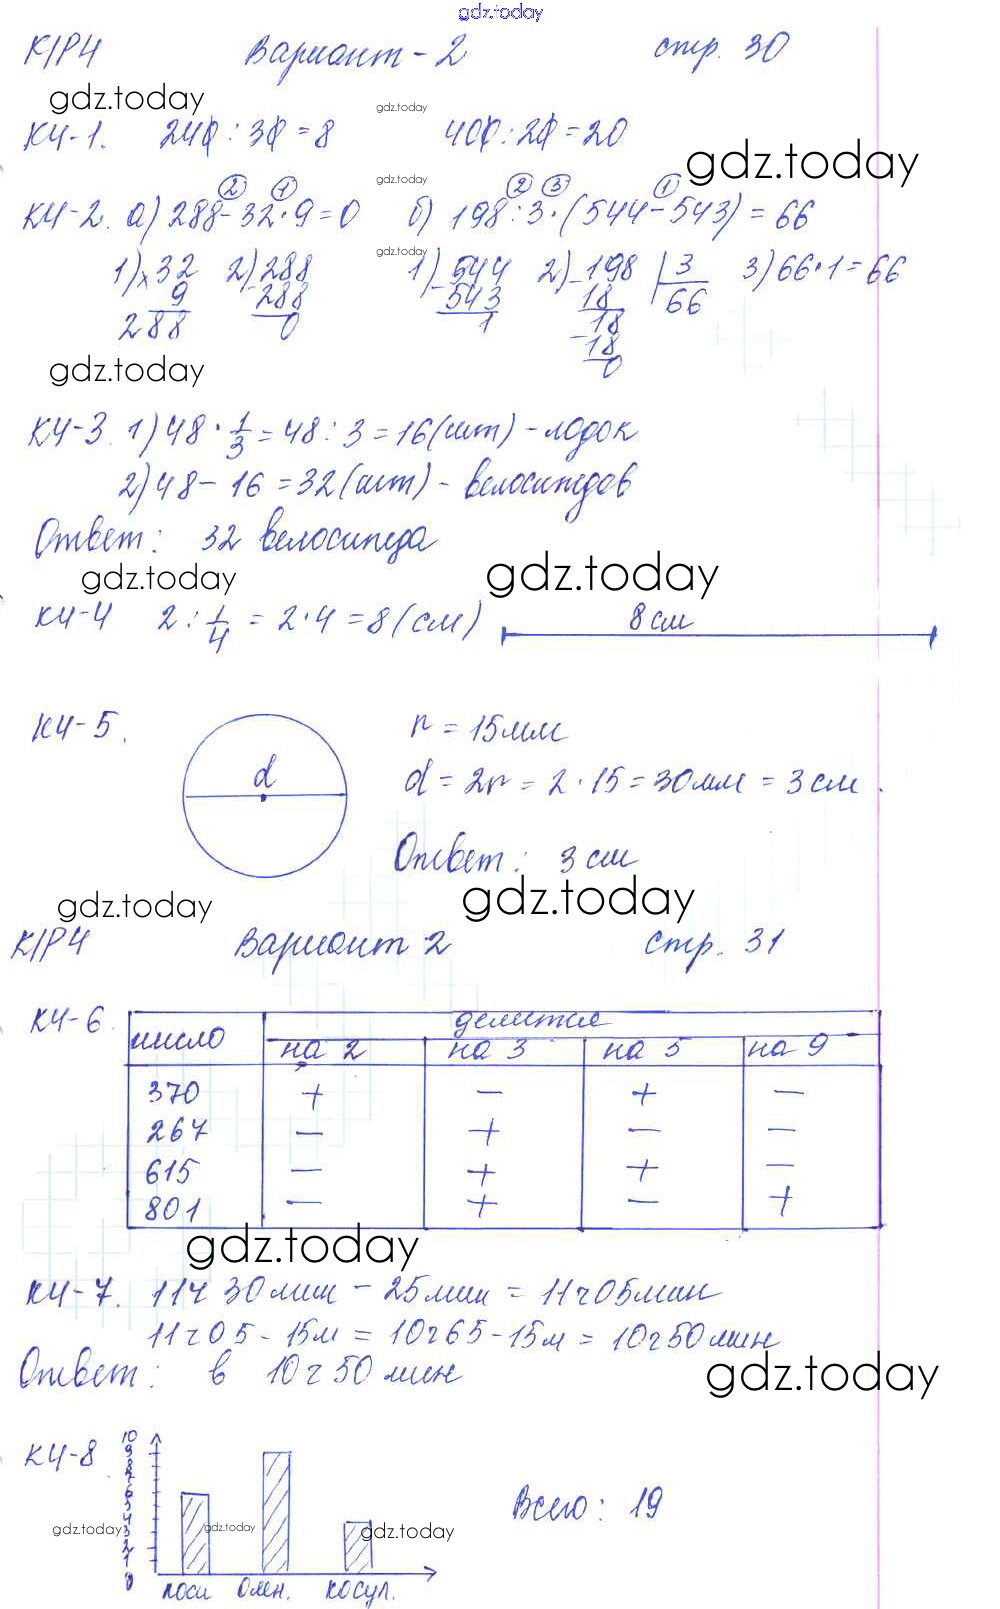 gdz.today
К/Р4 Вариант - 2 стр. 30
gdz.today gdz.today
К4-1. 240 : 30 = 8 400 : 20 = 20
gdz.today
gdz.today
2 1 2 3 1
К4-2. а) 288 - 32 · 9 = 0 б) 198 : 3 · (544 - 543) = 66
gdz.today
1) × 32 2) 288 1) - 544 2) - 198 | 3 3) 66 · 1 = 66
9 - 288 543 18 66
288 0 1 18
- 18
0
gdz.today
К4-3. 1) 48 · 1/3 = 48 : 3 = 16 (шт) - лодок
2) 48 - 16 = 32 (шт) - велосипедов
Ответ: 32 велосипеда
gdz.today gdz.today
К4-4 2 : 1/4 = 2 · 4 = 8 (см) 8 см
К4-5. d r = 15 мм
d = 2r = 2 · 15 = 30 мм = 3 см.
Ответ: 3 см
gdz.today gdz.today
К/Р4 Вариант 2 стр. 31
К4-6. число делится
на 2 на 3 на 5 на 9
370 + - + -
267 - + - -
615 - + + -
801 - + - +
gdz.today
К4-7. 11ч 30мин - 25мин = 11ч05мин
11ч05 - 15м = 10ч65 - 15м = 10ч50мин
Ответ: в 10ч50мин
gdz.today
К4-8
10
9
8
7
6
5
4
3
2
1
0
Всего: 19
gdz.today gdz.today gdz.today
лоси олен. косул.